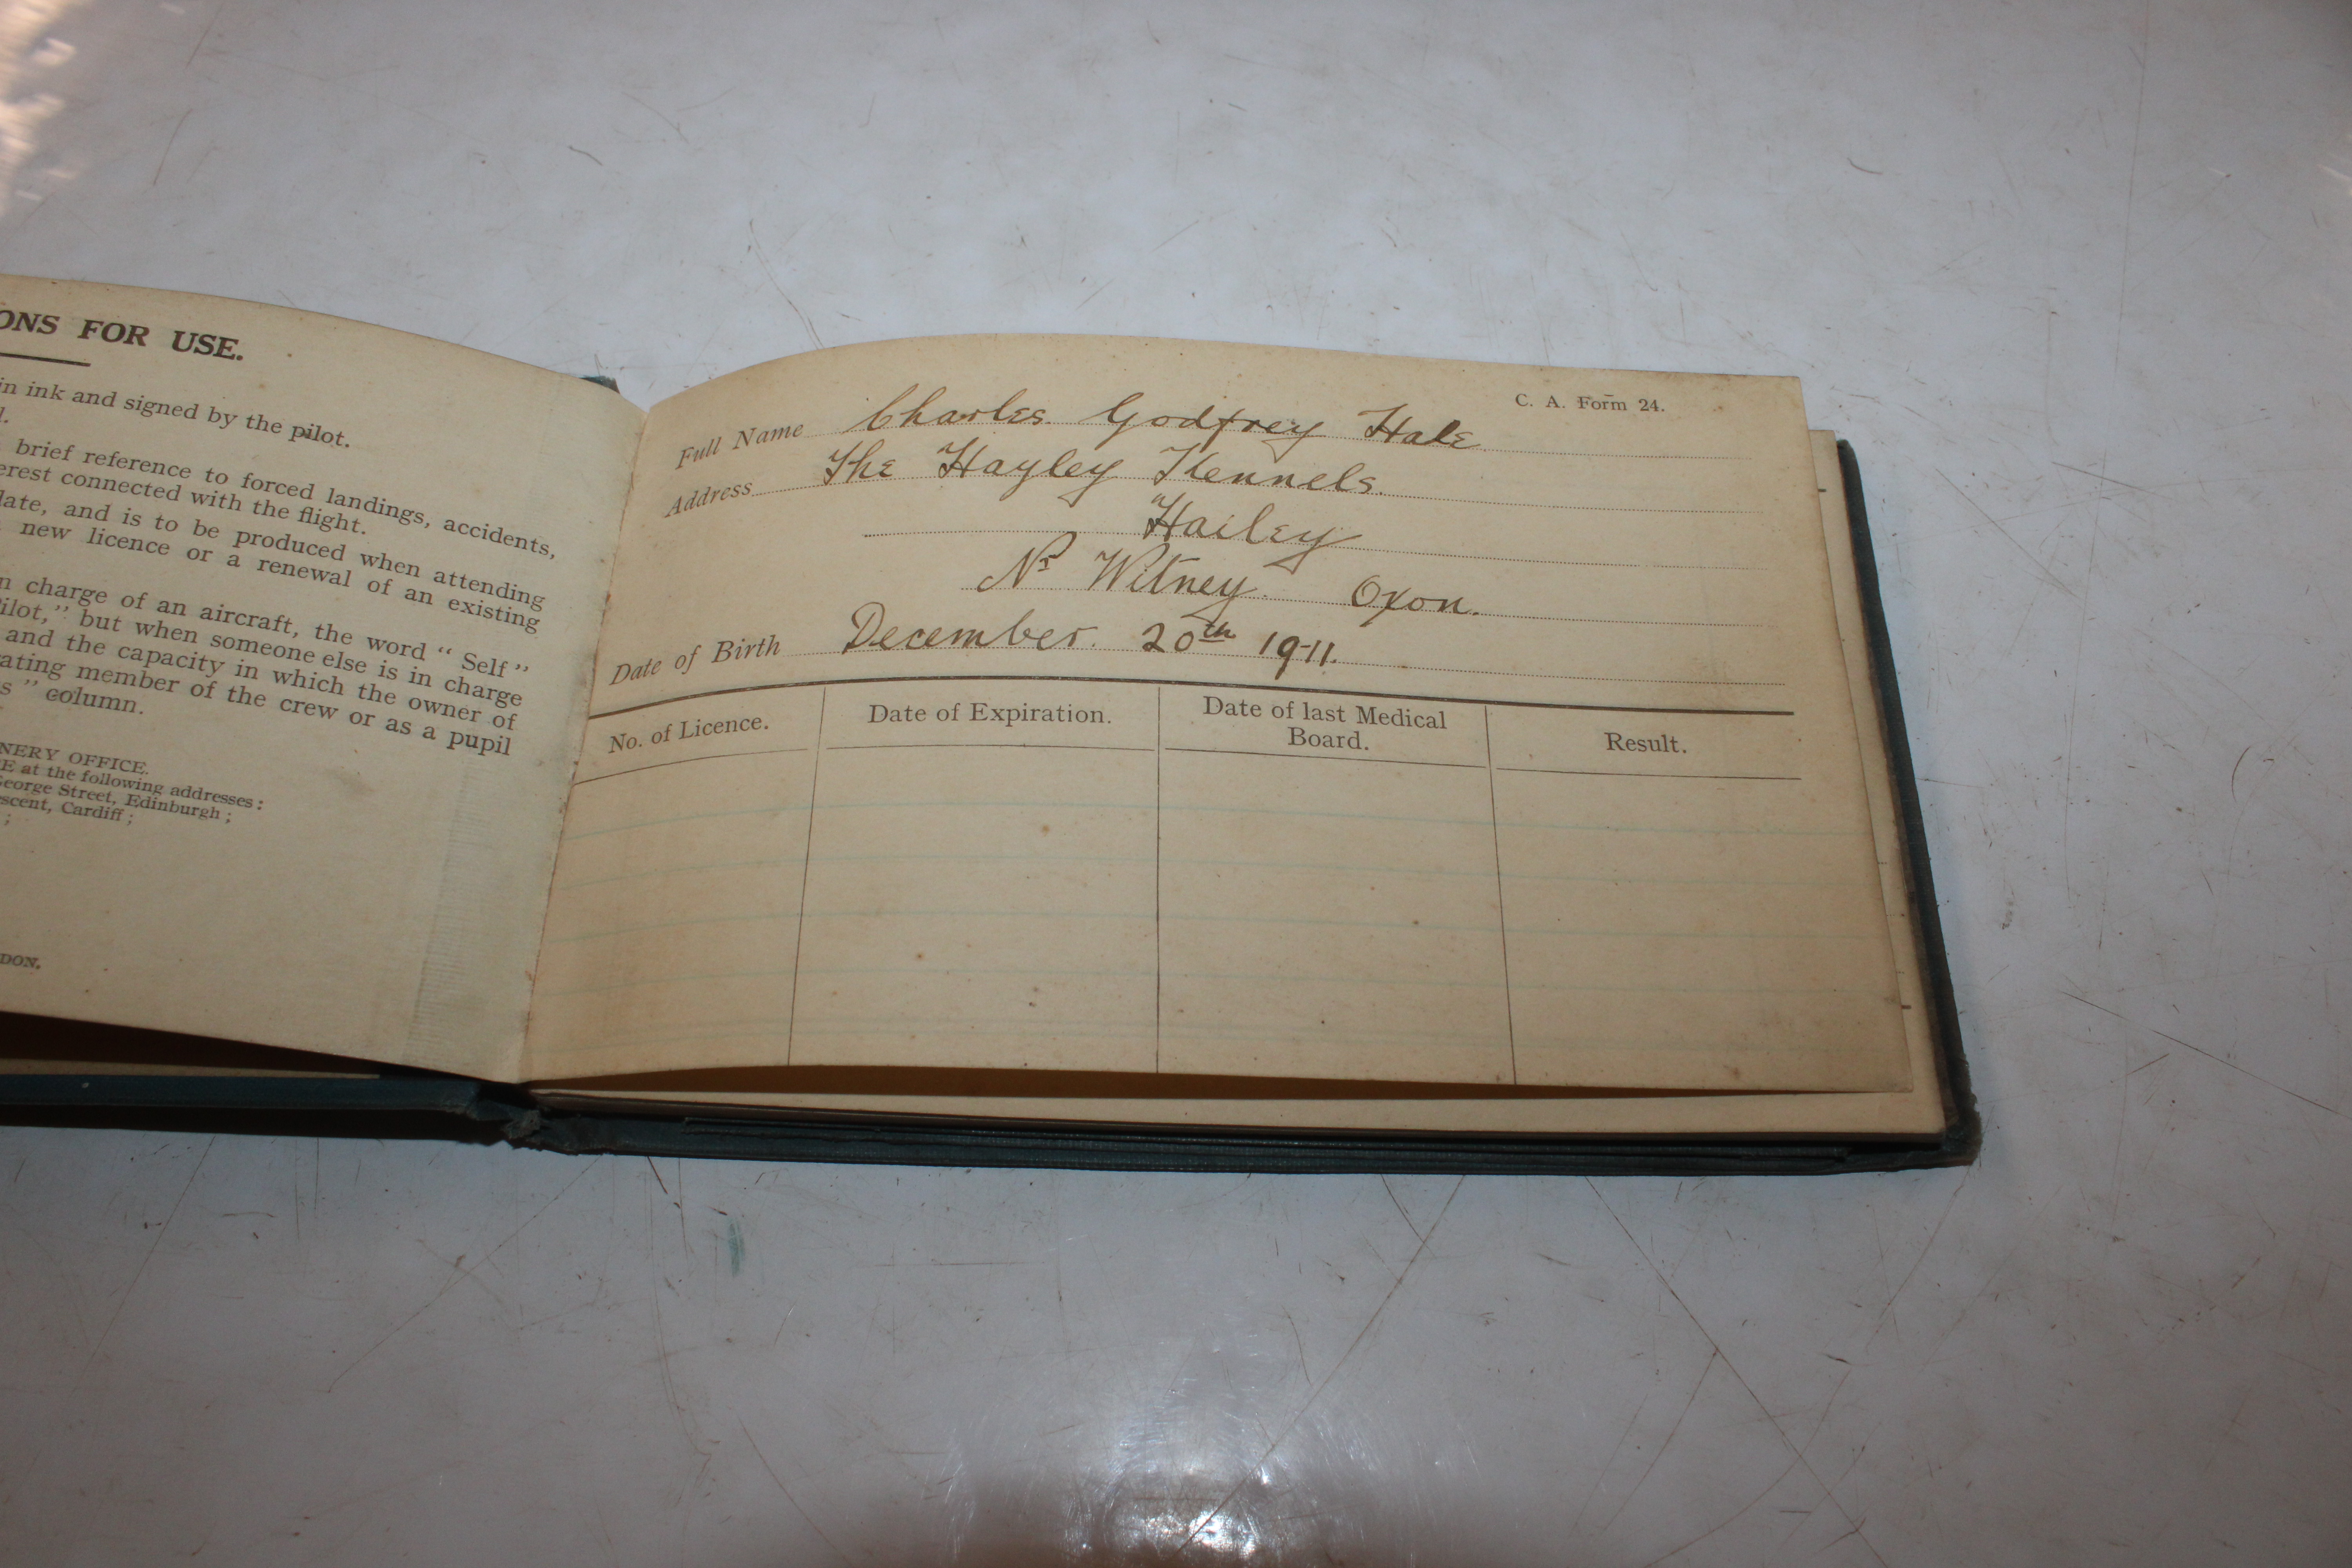 ONS FOR USE.
in ink and signed by the pilot.
d.
brief reference to forced landings, accidents,
erest connected with the flight.
date, and is to be produced when attending
new licence or a renewal of an existing
n charge of an aircraft, the word “ Self ”
Pilot,” but when someone else is in charge
and the capacity in which the owner of
ating member of the crew or as a pupil
s ” column.
NERY OFFICE.
E at the following addresses :
George Street, Edinburgh ;
escent, Cardiff ;
;
DON.
C. A. Form 24.
Full Name Charles Godfrey Hale
Address The Hayley Kennels.
Hailey
Nr Witney. Oxon.
Date of Birth December. 20th 1911.
No. of Licence. Date of Expiration. Date of last Medical Board. Result.